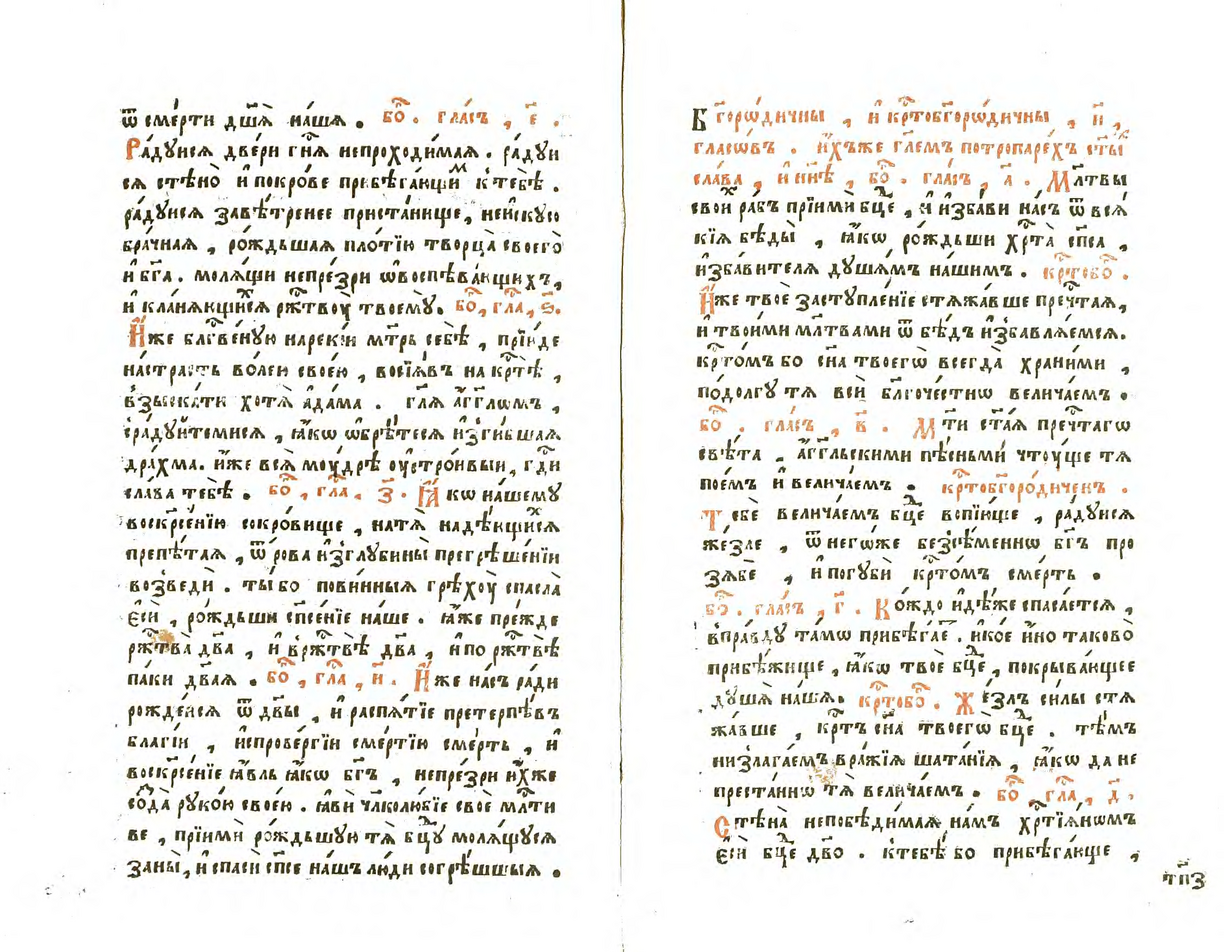 ѿ сме́рти дш҃ѧ̀ на́шѧ . бо҇ . гла́съ , е҃ .
Ра́дꙋисѧ две́ри гн҃ѧ непроходи́маѧ . ра́дꙋи
сѧ стѣно̀ и҆ покро́ве прибѣга́ющиⷨ к тебѣ̀ .
ра́дꙋисѧ завѣ́тренее приста́нище , неи҆скꙋсо
бра́чнаѧ , ро́ждьшаѧ пло́тїю творца̀ своего̀
и҆ бг҃а . молѧ́щи непре́зри ѡ҆воспѣва́ющихъ ,
и҆ кла́нѧющиⷯсѧ ржⷭ҇твоу̀ твоемꙋ̀ . бо҇ , гла , ѕ҃ .
И҆́же блгⷭ҇ве́нꙋю нареки́и мт҃рь себѣ̀ , прїи́де
на́страсть во́лею свое́ю , восїѧ́въ на крⷭ҇тѣ̀ ,
взыска́ти хотѧ̀ а҆да́ма . гл҃ѧ а҆́гг҃лѡмъ ,
сра́дꙋйтемисѧ , ꙗ҆́кѡ ѡ҆брѣ́тесѧ и҆зги́бшаѧ
дра́хма . и҆́же всѧ̀ моу́дрѣ оу҆стро́ивыи , гдⷭ҇и
сла́ва тебѣ̀ . бо҇ , гла . з҃ . Ꙗ҆́кѡ на́шемꙋ
воскрⷭ҇е́нїю сокро́вище , натѧ̀ надѣ́ющиⷯсѧ
препѣ́таѧ , ѿ ро́ва и҆зглꙋбины̀ прегрѣше́нїи
возведѝ . ты́ бо пови́нныѧ грѣхоу̀ спасла̀
є҆сѝ , ро́ждьши спⷭ҇е́нїе на́ше . ꙗ҆́же пре́жде
ржⷭ҇тва̀ дв҃а , и҆ вржⷭ҇твѣ̀ дв҃а , и҆ по ржⷭ҇твѣ̀
па́ки дв҃аѧ . бо҇ , гла , и҃ . И҆́же на́съ ра́ди
рожде́йсѧ ѿ дв҃ы , и҆ распѧ́тїе претерпѣ́въ
благі́и , и҆спрове́ргїи сме́ртїю сме́рть , и҆
воскрⷭ҇е́нїе ꙗ҆́вль ꙗ҆́кѡ бг҃ъ , непре́зри и҆́хже
со́зда рꙋко́ю свое́ю . ꙗ҆вѝ чл҃колю́бїе своѐ млⷭ҇ти
ве , прїимѝ ро́ждьшꙋю тѧ̀ бцⷣꙋ молѧ́щꙋсѧ
заны̀ , и҆ спасѝ сп҃се на́шъ лю́ди согрѣ́шшыѧ .
Бг҃оро́дичны , и҆ крⷭ҇тобг҃оро́дичны , и҃ ,
гласѡ́въ . и҆́хъже гл҃емъ потропаре́хъ ст҃ы́ⷯ
сла́ва , и҆ ни́нѣ , бо҇ . гла́съ , а҃ . Мл҃твы
свои́ⷯ ра́бъ прїимѝ бцⷣе , и҆ и҆зба́ви на́съ ѿ всѧ́
кїѧ бѣды̀ , ꙗ҆́кѡ ро́ждьши хрⷭ҇та̀ сп҃са ,
и҆зба́вителѧ дꙋша́мъ на́шимъ . крⷭ҇тобо҇ .
И҆́же твоѐ застꙋпле́нїе стѧжа́вше пречⷭ҇таѧ ,
и҆ твои́ми мл҃твами ѿ бѣ́дъ и҆збавлѧ́емсѧ .
крⷭ҇то́мъ бо сн҃а твоегѡ̀ всегда̀ храни́ми ,
подо́лгꙋ тѧ̀ всѝ блгⷭ҇оче́стнѡ велича́емъ .
бо҇ . гла́съ , в҃ . Мт҃и ст҃аѧ пречⷭ҇тагѡ
свѣ́та . а҆́гг҃льскими пѣ́сньми чтоу́ще тѧ̀
пое́мъ и҆ велича́емъ . крⷭ҇тобг҃оро́диченъ .
Тебѐ велича́емъ бцⷣе вопїю́ще , ра́дꙋисѧ
же́зле , ѿ негѡ́же безсѣ́меннѡ бг҃ъ про
зѧ́бе , и҆ погꙋбѝ крⷭ҇то́мъ сме́рть .
бо҇ . гла́съ , г҃ . Ко́ждо и҆дѣ́же спаса́етсѧ ,
впра́вдꙋ та́мѡ прибѣга́е . и҆ ко́е и҆́но таково̀
прибѣ́жище , ꙗ҆́кѡ твоѐ бцⷣе , покрыва́ющее
дꙋ́шѧ на́шѧ . крⷭ҇тобо҇ . Же́злъ си́лы стѧ
жа́вше , крⷭ҇тъ сн҃а твоегѡ̀ бцⷣе . тѣ́мъ
низлага́емъ вра́жїѧ шата́нїѧ , ꙗ҆́кѡ да не
преста́ннѡ тѧ̀ велича́емъ . бо҇ , гла , д҃ .
Стѣна̀ непобѣди́маѧ на́мъ хрⷭ҇тїѧ́нѡмъ
є҆сѝ бцⷣе дв҃о . ктебѣ́ бо прибѣга́юще ,
тп҃з